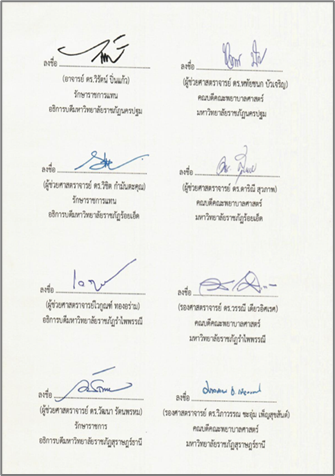 ลงชื่อ
(อาจารย์ ดร.วิรัตน์ ปิ่นแก้ว)
รักษาราชการแทน
อธิการบดีมหาวิทยาลัยราชภัฏนครปฐม
ลงชื่อ
(ผู้ช่วยศาสตราจารย์ ดร.หทัยชนก บัวเจริญ)
คณบดีคณะพยาบาลศาสตร์
มหาวิทยาลัยราชภัฏนครปฐม
ลงชื่อ
(ผู้ช่วยศาสตราจารย์ ดร.วิชิต กำมันตะคุณ)
รักษาราชการแทน
อธิการบดีมหาวิทยาลัยราชภัฏร้อยเอ็ด
ลงชื่อ
(ผู้ช่วยศาสตราจารย์ ดร.ดาริณี สุวภาพ)
คณบดีคณะพยาบาลศาสตร์
มหาวิทยาลัยราชภัฏร้อยเอ็ด
ลงชื่อ
(ผู้ช่วยศาสตราจารย์ไวกูณฑ์ ทองอร่าม)
อธิการบดีมหาวิทยาลัยราชภัฏรำไพพรรณี
ลงชื่อ
(รองศาสตราจารย์ ดร.วรรณี เดียวอิศเรศ)
คณบดีคณะพยาบาลศาสตร์
มหาวิทยาลัยราชภัฏรำไพพรรณี
ลงชื่อ
(ผู้ช่วยศาสตราจารย์ ดร.วัฒนา รัตนพรหม)
รักษาราชการ
อธิการบดีมหาวิทยาลัยราชภัฏสุราษฎร์ธานี
ลงชื่อ
(รองศาสตราจารย์ ดร.วิภาวรรณ ชะอุ่ม เพ็ญสุขสันต์)
คณบดีคณะพยาบาลศาสตร์
มหาวิทยาลัยราชภัฏสุราษฎร์ธานี